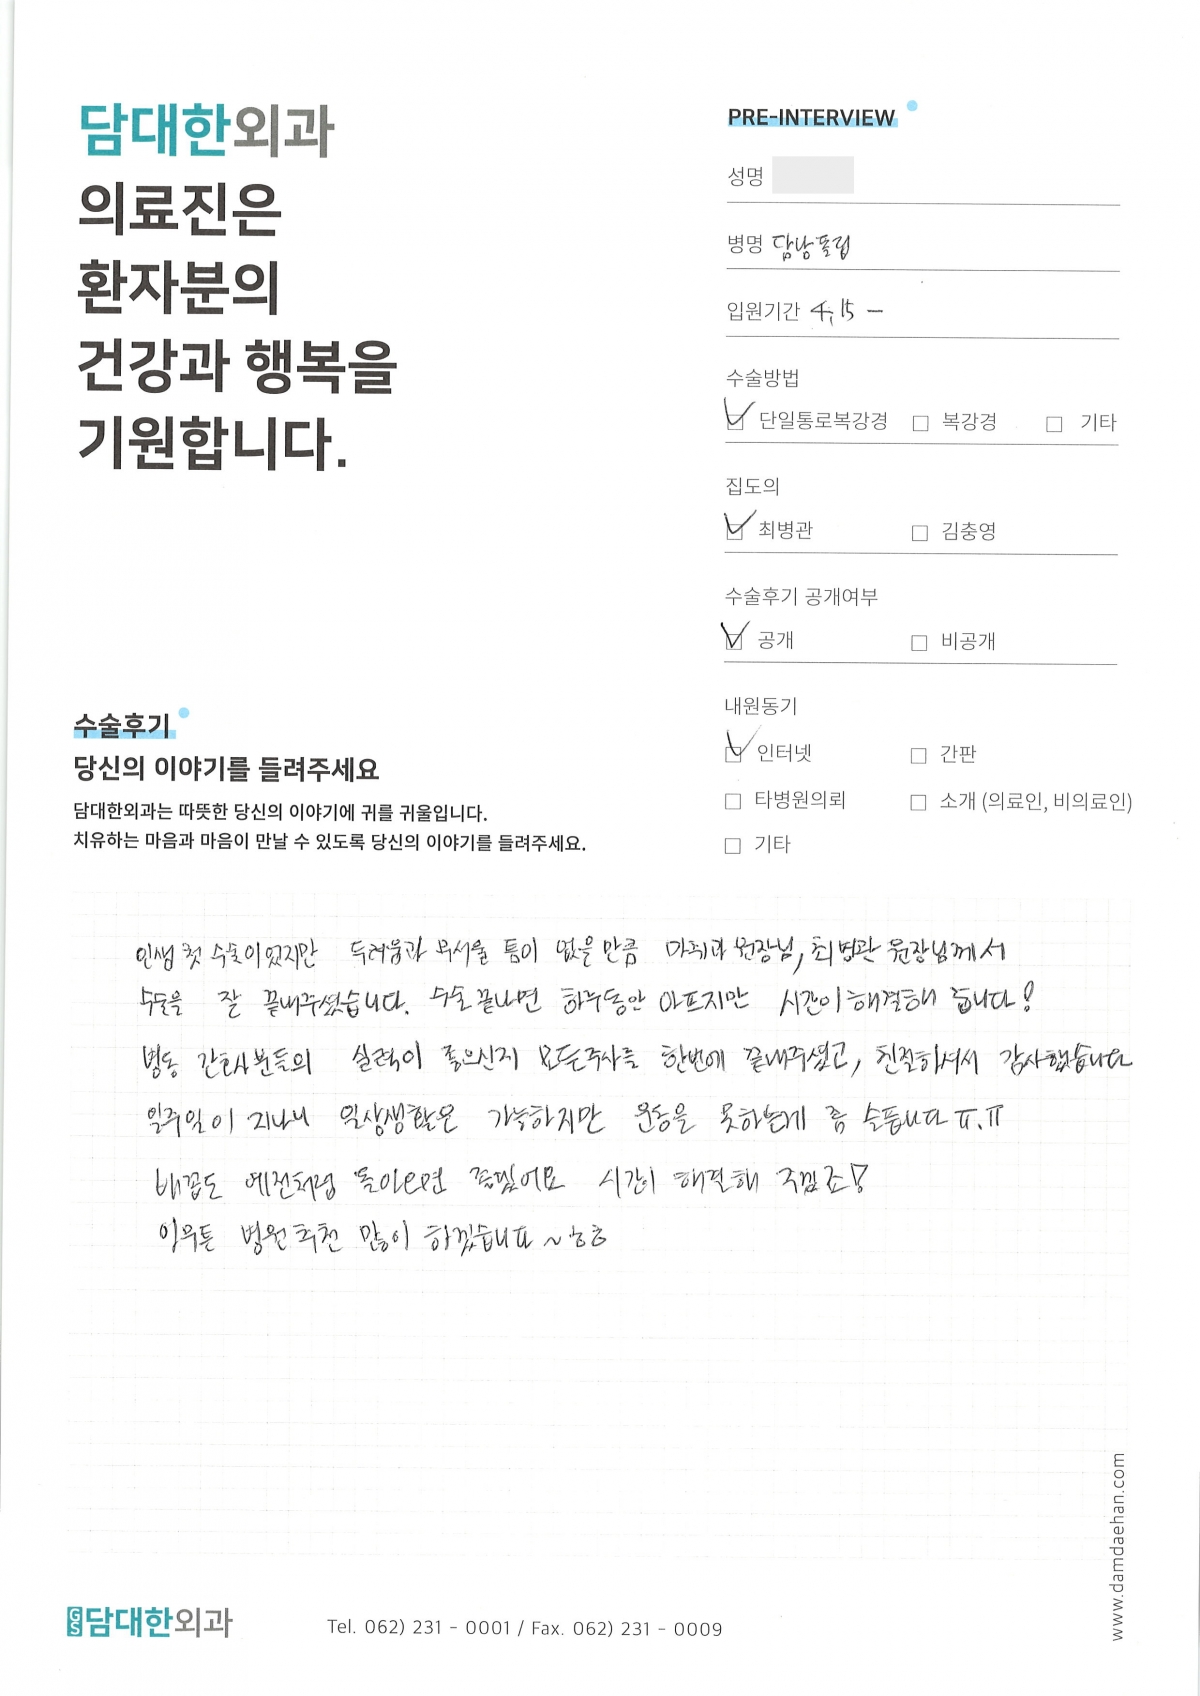 담대한외과
의료진은
환자분의
건강과 행복을
기원합니다.
PRE-INTERVIEW
성명
병명 담낭폴립
입원기간 4.15 -
수술방법
단일통로복강경 복강경 기타
집도의
최병관 김충영
수술후기 공개여부
공개 비공개
내원동기
인터넷 간판
타병원의뢰 소개 (의료인, 비의료인)
기타
수술후기
당신의 이야기를 들려주세요
담대한외과는 따뜻한 당신의 이야기에 귀를 귀울입니다.
치유하는 마음과 마음이 만날 수 있도록 당신의 이야기를 들려주세요.
인생 첫 수술이었지만 두려움과 무서울 틈이 없을만큼 마취과 원장님, 최병관 원장님께서
수술을 잘 끝내주셨습니다. 수술 끝나면 하루동안 아프지만 시간이 해결해 줍니다!
병동 간호사분들의 실력이 좋으신지 모든주사를 한번에 끝내주셨고, 친절하셔서 감사했습니다
일주일이 지나니 일상생활은 가능하지만 운동을 못하는게 좀 슬픕니다 ㅠ.ㅠ
배꼽도 예전처럼 돌아오면 좋겠어요 시간이 해결해 주겠죠!
아무튼 병원추천 많이 하겠습니다 ~ㅎㅎ
GS 담대한외과
Tel. 062) 231 - 0001 / Fax. 062) 231 - 0009
www.damdaehan.com